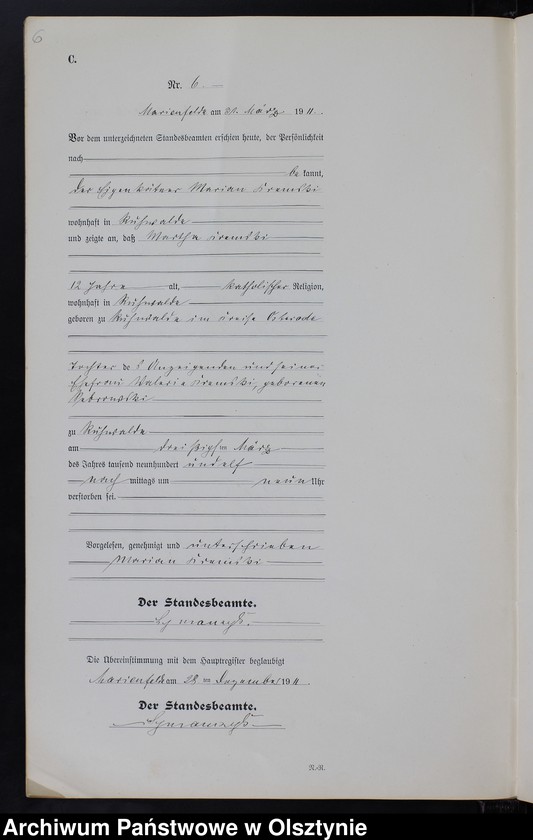 6
C.
Nr. 6
Marienfelde am März 1911.
Vor dem unterzeichneten Standesbeamten erschien heute, der Persönlichkeit
nach
be kannt,
der Eigenkätner Marian Kremski
wohnhaft in Kuhwalde
und zeigte an, daß Martha Kremski
12 Jahre alt, katholischer Religion,
wohnhaft in Kuhwalde
geboren zu Kuhwalde im Kreise Osterode
Tochter des Anzeigenden und seiner
Ehefrau Valeria Kremski, geborenen
zu Kuhwalde
am dreißigsten März
des Jahres tausend neunhundert und elf
nach mittags um neun Uhr
verstorben sei.
Vorgelesen, genehmigt und unterschrieben
Marian Kremski
Der Standesbeamte.
Die Übereinstimmung mit dem Hauptregister beglaubigt
Marienfelde am Dezember 1911.
Der Standesbeamte.
N.-R.
Archiwum Państwowe w Olsztynie